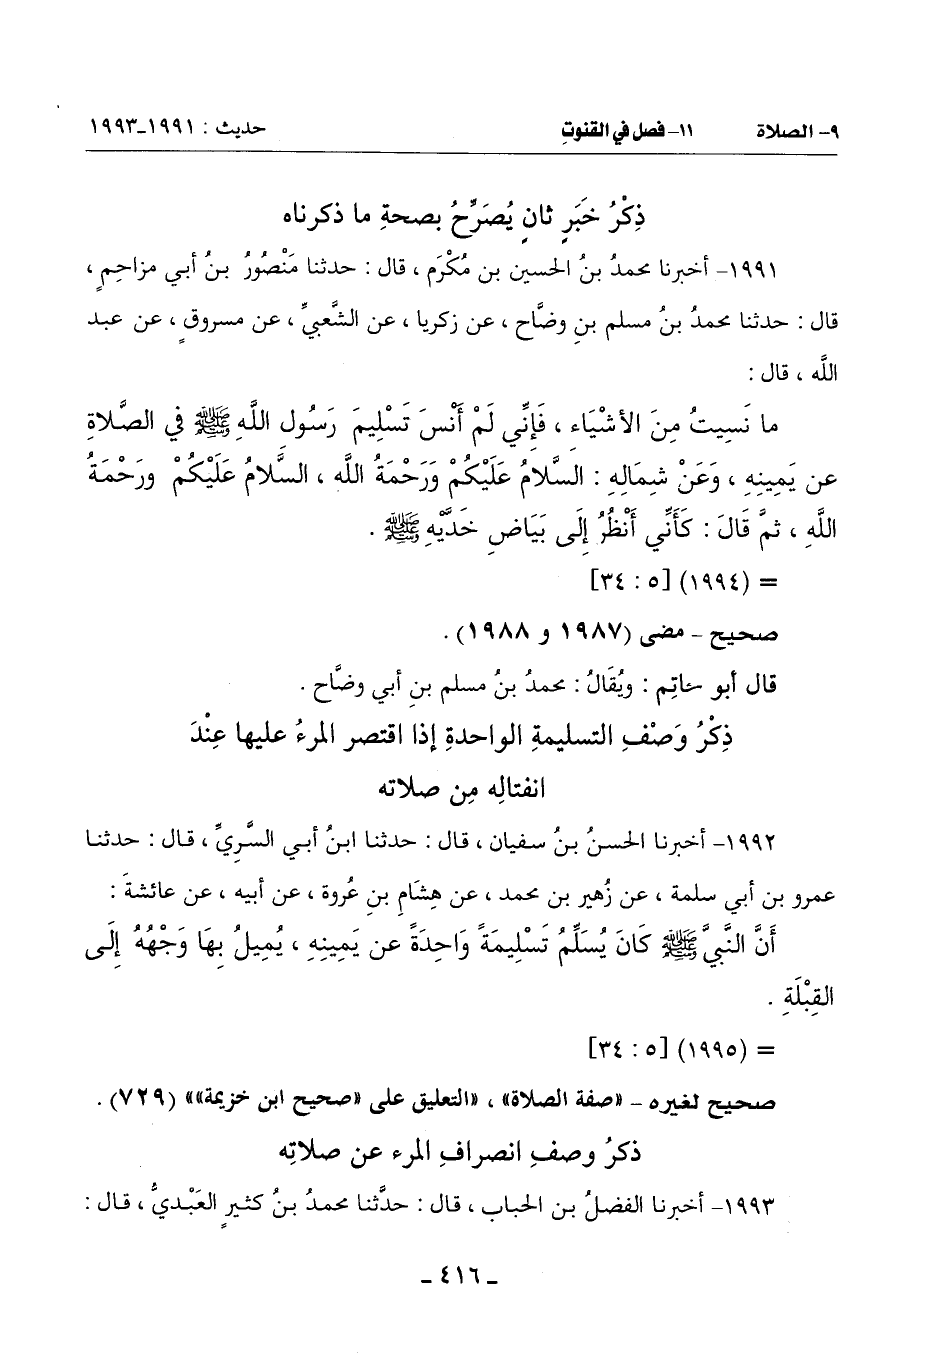 ٩- الصلاة ١١- فصل في القنوتِ حديث : ١٩٩١-١٩٩٣
ذِكْرُ خَبَرٍ ثانٍ يُصَرِّحُ بصحةِ ما ذكرناه
١٩٩١- أخبرنا محمدُ بنُ الحسين بن مُكْرَم ، قال : حدثنا مَنْصُورُ بنُ أبي مزاحِمٍ ،
قال : حدثنا محمدُ بنُ مسلم بنِ وضَّاح ، عن زكريا ، عن الشَّعبيِّ ، عن مسروقٍ ، عن عبد
اللَّه ، قال :
ما نَسِيتُ مِنَ الأشْيَاءِ ، فَإِنِّي لَمْ أَنْسَ تَسْلِيمَ رَسُولِ اللَّهِ ﷺ في الصَّلاةِ
عن يَمِينِهِ ، وَعَنْ شِمَالِهِ : السَّلامُ عَلَيْكُمْ وَرَحْمَةُ اللَّه ، السَّلامُ عَلَيْكُمْ ورَحْمَةُ
اللَّهِ ، ثمَّ قَالَ : كَأَنِّي أَنْظُرُ إِلَى بَيَاضِ خَدَّيْهِ ﷺ .
= (١٩٩٤) [٥ : ٣٤]
صحيح - مضى (١٩٨٧ و ١٩٨٨) .
قال أبو حاتِم : ويُقَالُ : محمدُ بنُ مسلم بنِ أبي وضَّاح .
ذِكْرُ وَصْفِ التسليمةِ الواحدةِ إذا اقتصر المرءُ عليها عِنْدَ
انفتالِه مِن صلاته
١٩٩٢- أخبرنا الحسنُ بنُ سفيان ، قال : حدثنا ابنُ أبي السَّرِيِّ ، قال : حدثنا
عمرو بن أبي سلمة ، عن زُهير بن محمد ، عن هِشَامِ بنِ عُروة ، عن أبيه ، عن عائشةَ :
أَنَّ النَّبيَّ ﷺ كَانَ يُسَلِّمُ تَسْلِيمَةً وَاحِدَةً عن يَمِينِهِ ، يُمِيلُ بِهَا وَجْهُهُ إِلَى
القِبْلَةِ .
= (١٩٩٥) [٥ : ٣٤]
صحيح لغيره - «صفة الصلاة» ، «التعليق على «صحيح ابن خزيمة»» (٧٢٩) .
ذكرُ وصفِ انصرافِ المرءِ عن صلاتِه
١٩٩٣- أخبرنا الفضلُ بن الحباب ، قال : حدَّثنا محمدُ بنُ كثيرٍ العَبْديُّ ، قال :
- ٤١٦ -